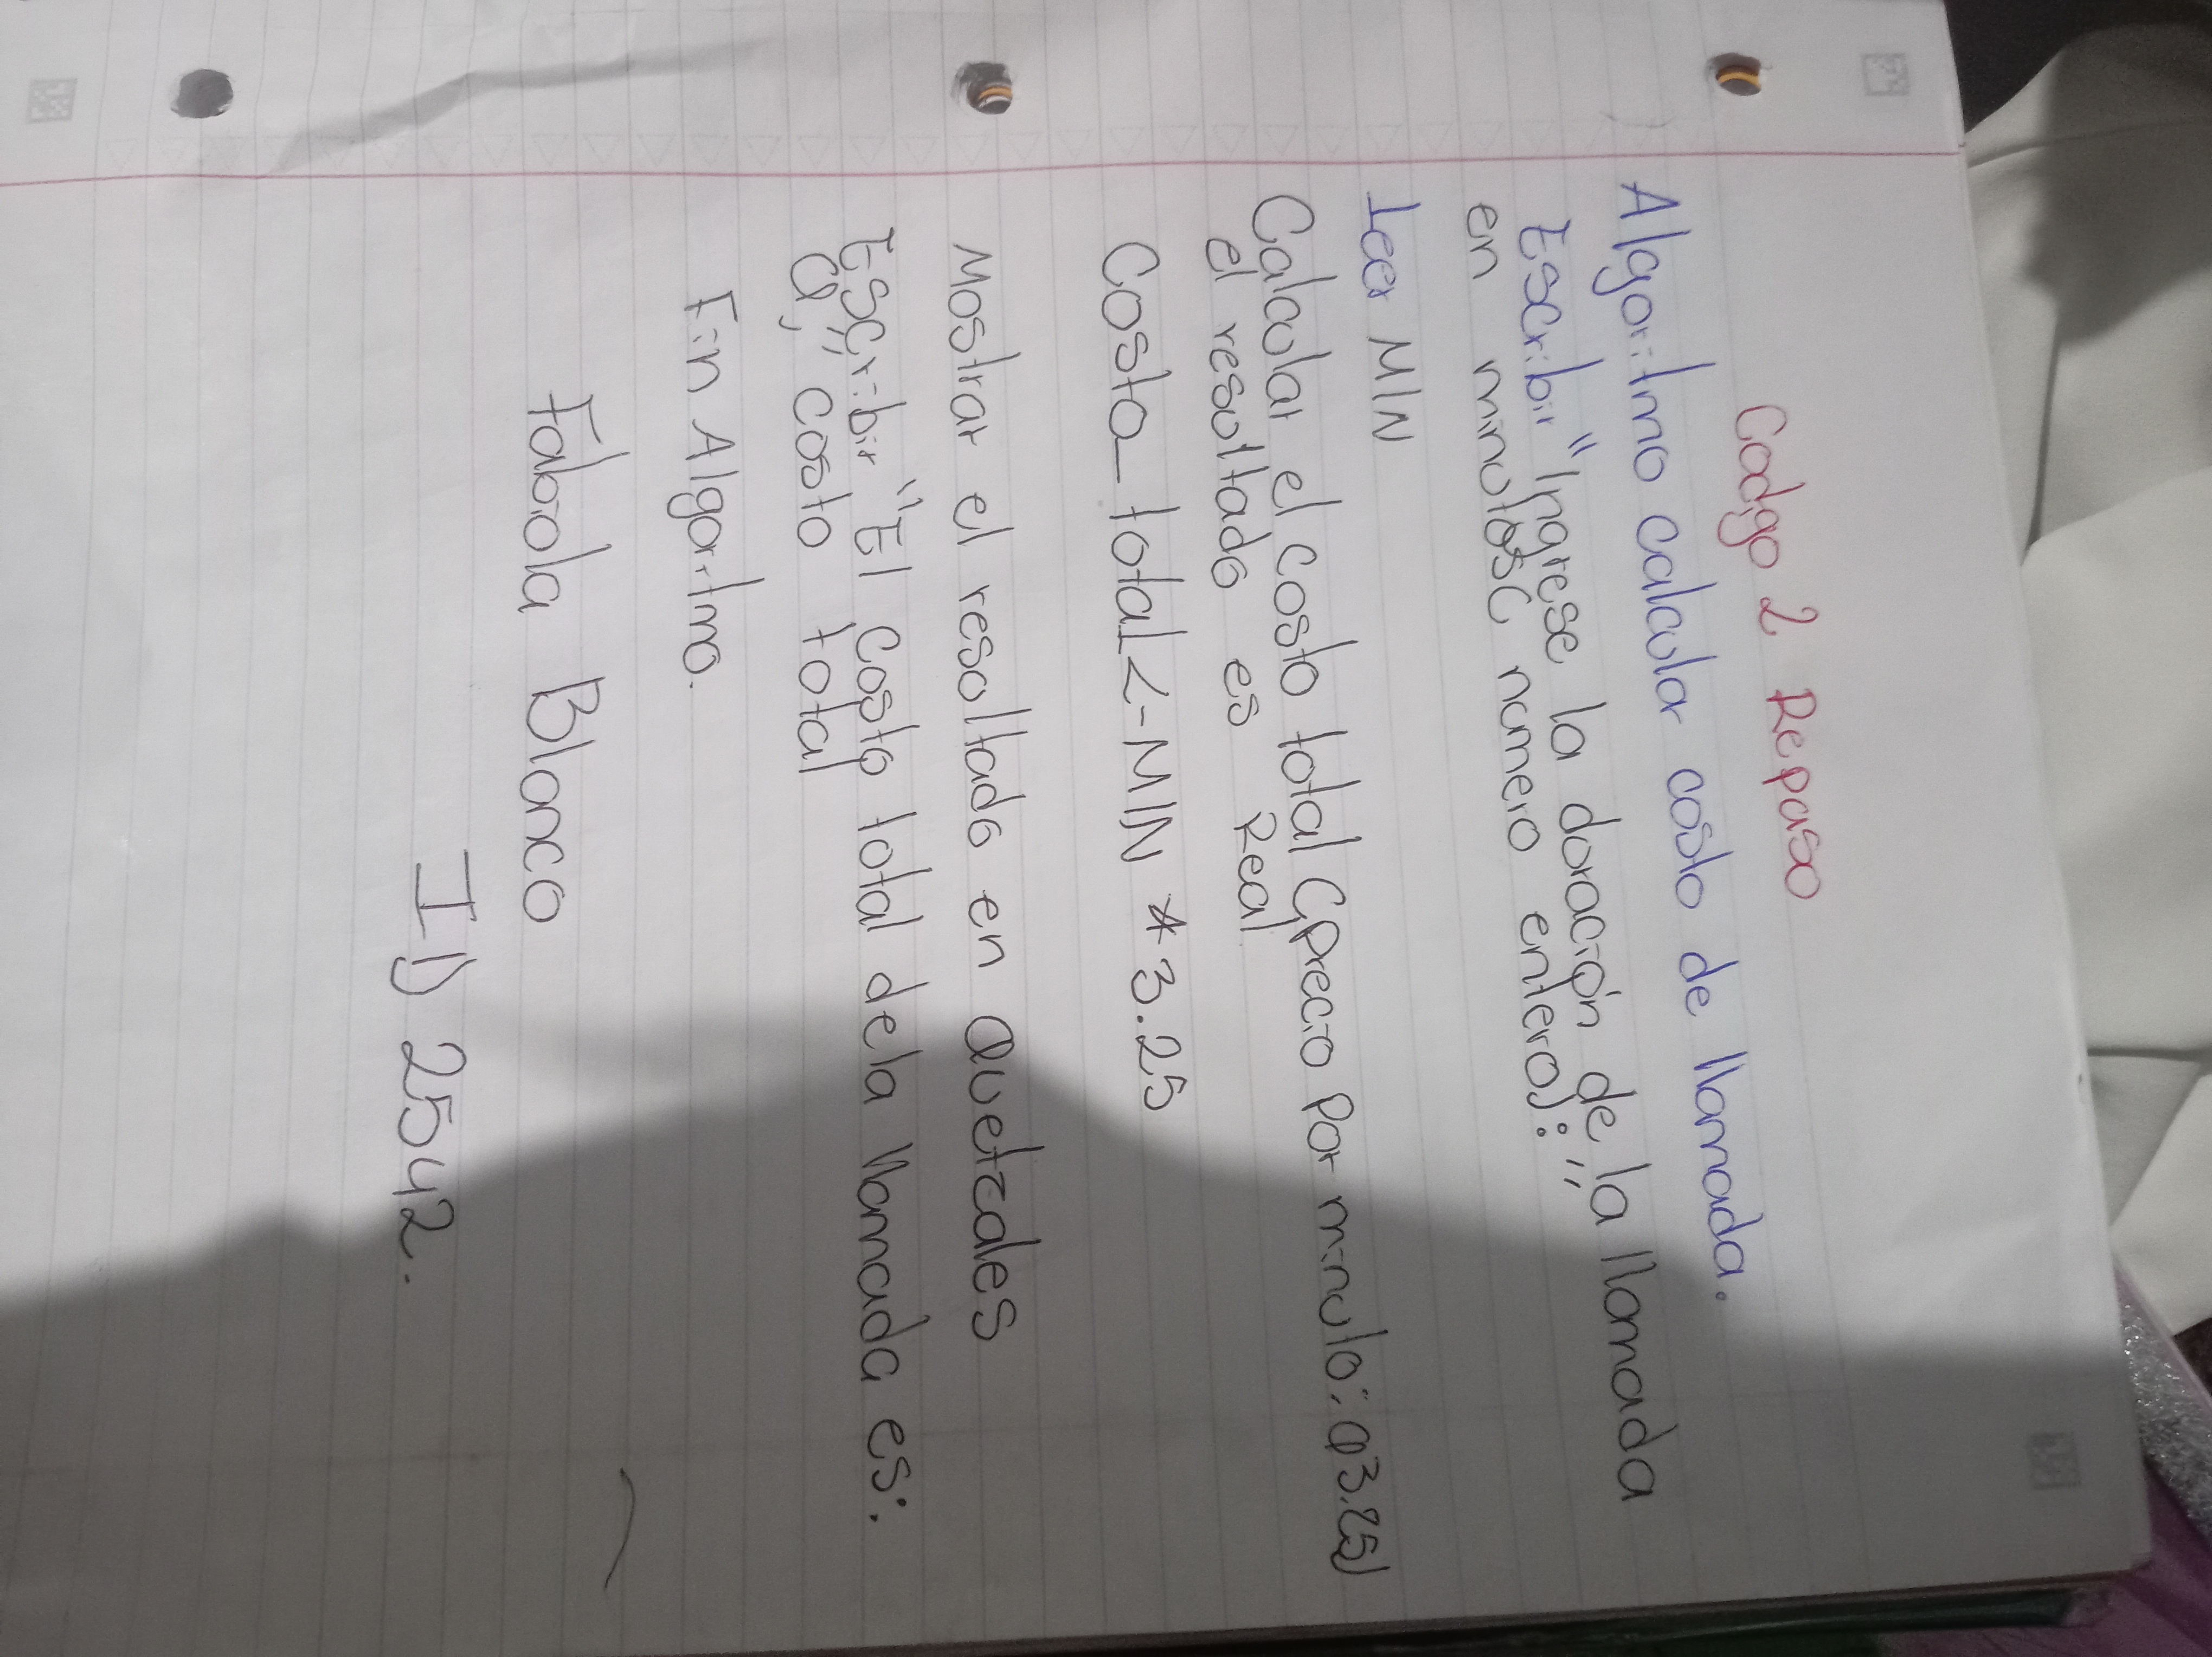 Codigo 2 Repaso
Algoritmo calcular costo de llamada.
Escribir "Ingrese la duración de la llamada
en minutos( numero entero): "
Leer MIN
Calcular el costo total (precio por minuto: Q3.25)
el resultado es Real
Costo_total <- MIN * 3.25
Mostrar el resultado en Quetzales
Escribir "El costo total de la llamada es:
Q," costo total
Fin Algoritmo.
Fabiola Blanco
ID 25542.